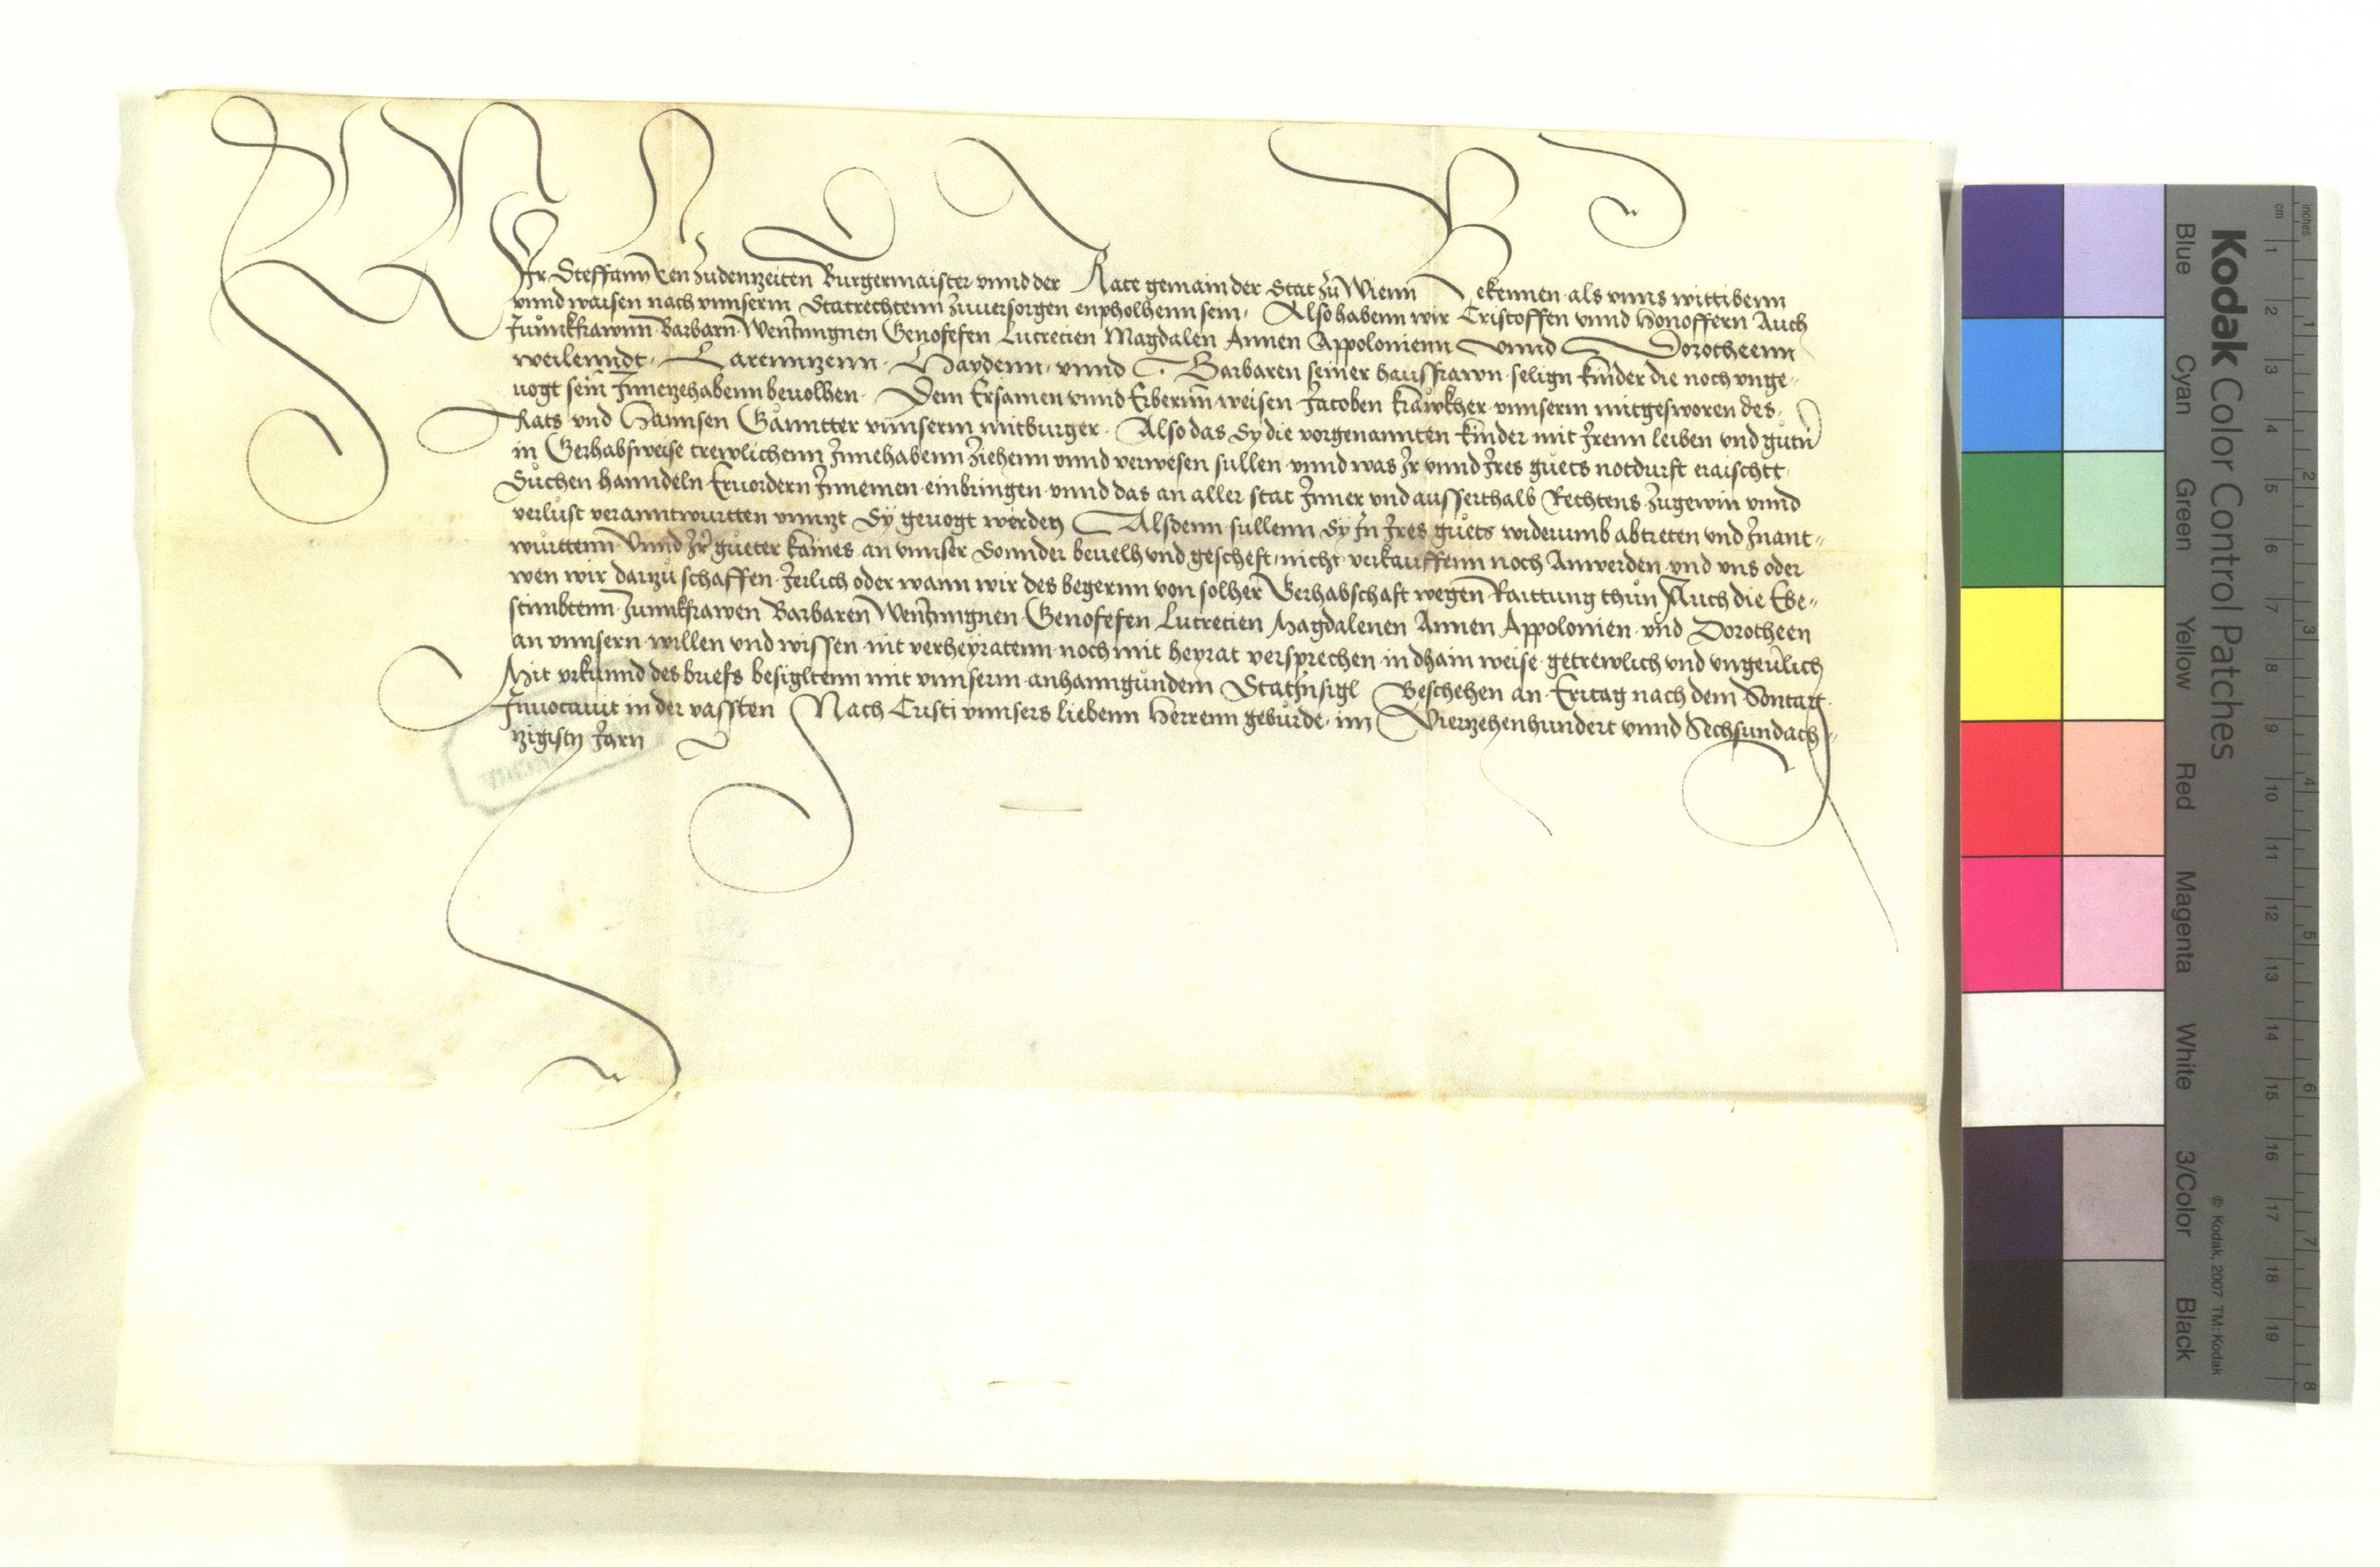 Wir Steffann Een zudenzeiten Burgermaister vnnd der Rate gemain der Stat zu Wienn Bekennen als vnns wittibenn
vnnd waisen nach vnnserm Statrechtenn zuuersorgen enpholhenn sein Also habenn wir Cristoffen vnnd Honoffern Auch
Junnkfrawnn Barbarn Genofefen Lucrecien Magdalen Annen Appolonienn vnnd Dorotheenn
weilenndt Larennzenn Haydenn vnnd Barbaren seiner hausfrawn selign kinder die noch vnge-
uogt sein Innezehabenn beuolhen Dem Ersamen vnnd Erbernn weisen Jacoben vnnserm mitgesworen des
Rats vnd Hannsen vnnserm mitburger Also das Sy die vorgenannten kinder mit Irenn leiben vnd gůtn
in Gerhabsweise trewlichenn Innehabenn ziehenn vnnd verwesen sullen vnnd was Ir vnnd Ires gůets notdurft eraischtt
Sůchen hanndeln Eruordern Innemen einbringen vnnd das an aller stat Inner vnd ausserthalb Rechtens zugewin vnnd
verlust veranntwurtten vnnzt Sy geuogt werden Alsdenn sullenn Sy In Ires gůets widerumb abtreten vnd Inant-
wurttenn Vnnd Ir gůeter kaines an vnnser Sonnder beuelh vnd gescheft nicht verkauffenn noch Anwerden vnd vns oder
wen wir darzů schaffen Jerlich oder wann wir des begernn von solher Gerhabschaft wegen Raittung thůn Auch die Ebe-
stimbtenn Junnkfrawen Barbaren Genofefen Lucrecien Magdalenen Annen Appolonien vnd Dorotheen
an vnnsern willen vnd wissen nit verheyratenn noch mit heyrat versprechen in dhain weise getrewlich vnd vngeuerlich
Mit vrkunnd des briefs besigltenn mit vnnserm anhanngunndem StatInsigl Beschehen an Eritag nach dem Sontag
Inuocauit in der vassten Nach Cristi vnnsers liebenn Herrenn gebůrde im Vierzehenhundert vnnd Sechsundach-
zigistn Jarn
Kodak Color Control Patches
Blue Cyan Green Yellow Red Magenta White 3/Color Black
© Kodak, 2007 TM: Kodak
inches 1 2 3 4 5 6 7 8
cm 1 2 3 4 5 6 7 8 9 10 11 12 13 14 15 16 17 18 19